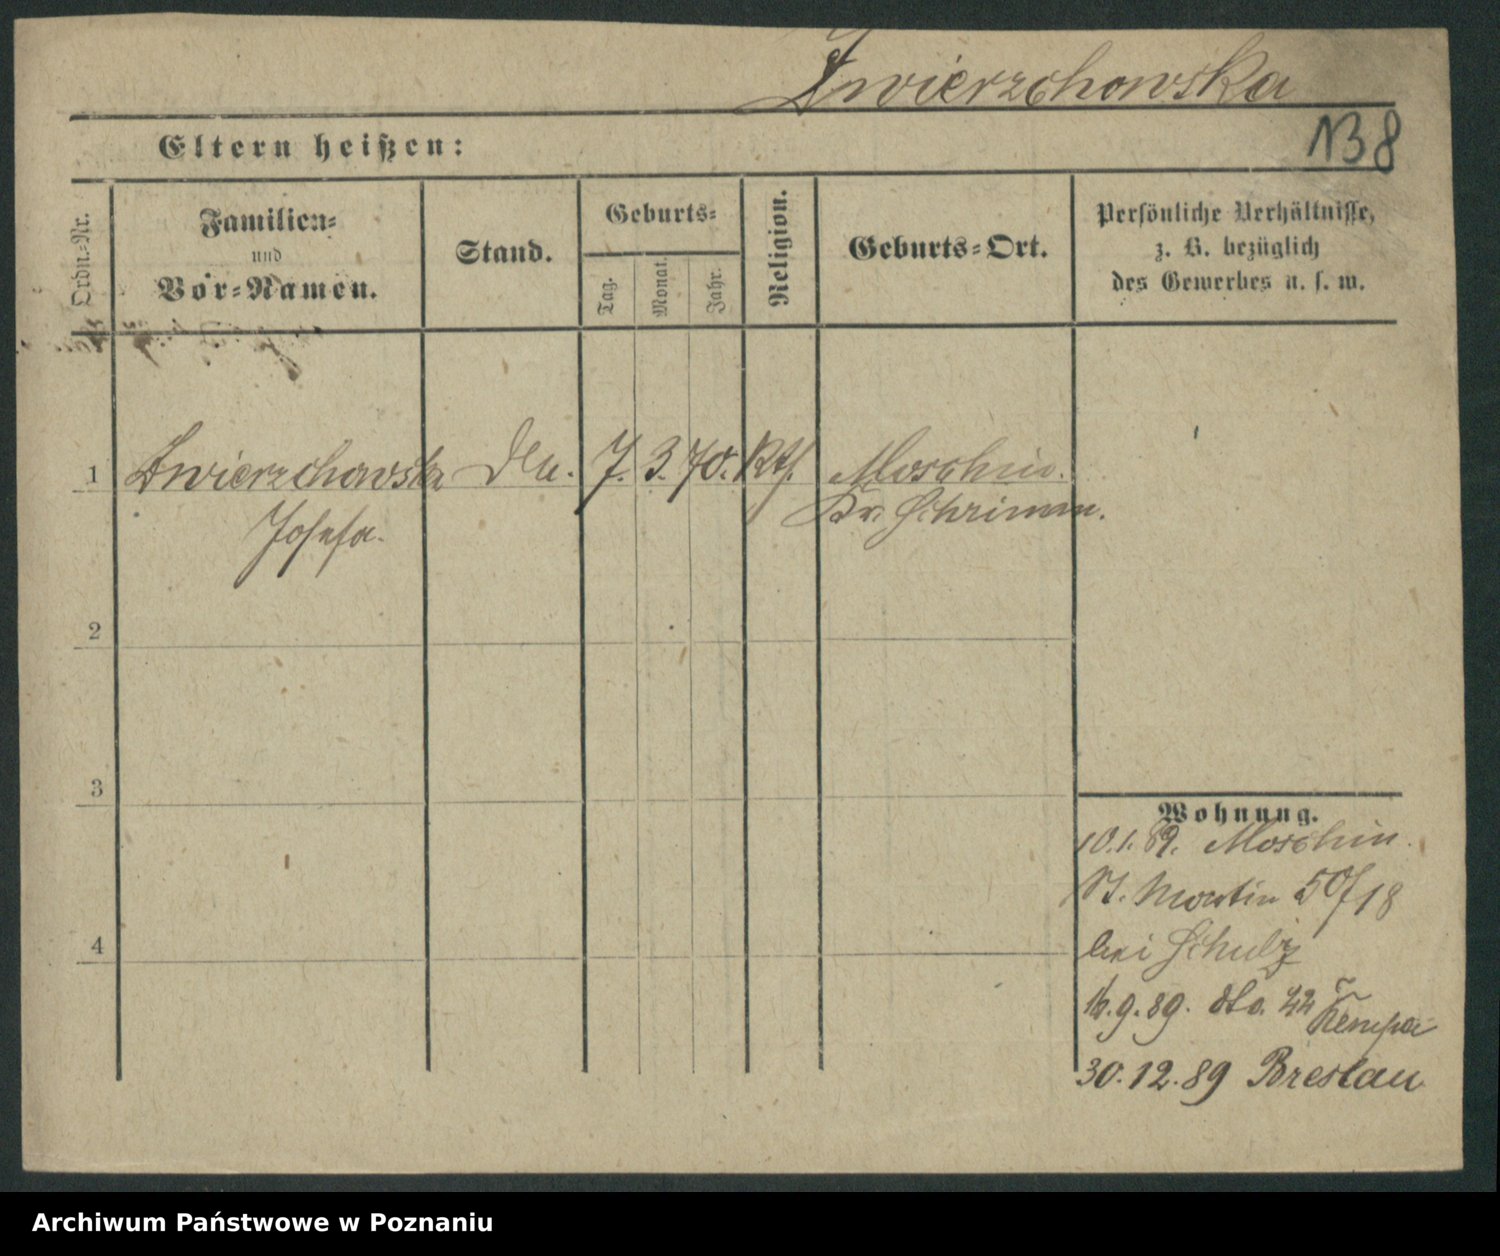 Zwierzchowska
Eltern heißen:
138
Ordn.-Nr.
Familien-
und
Vor-Namen.
Stand.
Geburts-
Tag.
Monat.
Jahr.
Religion.
Geburts-Ort.
Persönliche Verhältnisse,
z. B. bezüglich
des Gewerbes u. s. w.
1 Zwierzchowska 7. 3. 70. Kth. Moschin.
Josefa. Kr. Schrimm.
2
3
4
Wohnung.
10.1.89. Moschin.
St. Martin 50/18
bei Schulz
16.9.89. dto. 42 Kempa
30.12.89 Breslau
Archiwum Państwowe w Poznaniu